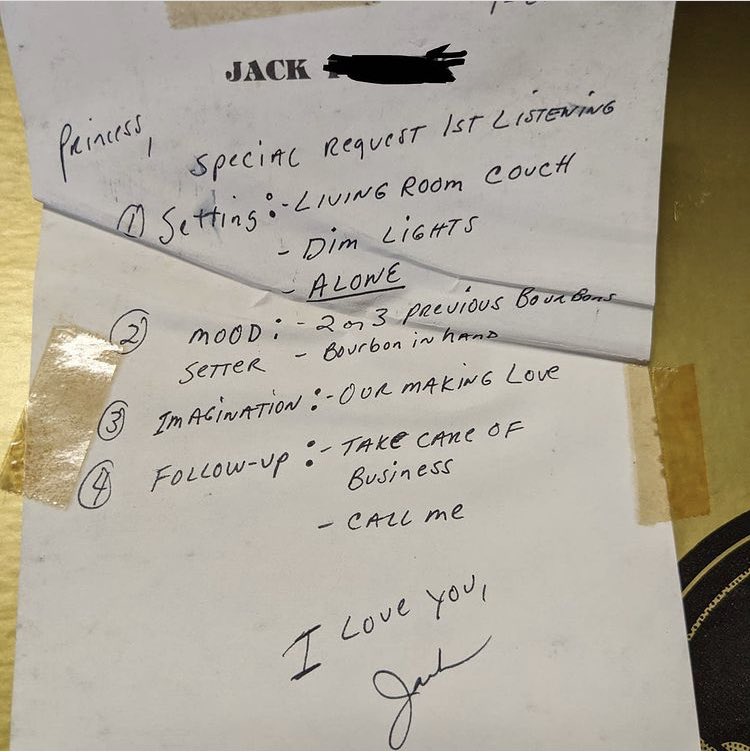 JACK
Princess,
Special Request 1st Listening
① Setting: - Living Room Couch
- Dim Lights
- ALONE
② Mood: - 2 or 3 previous Bourbons
Setter - Bourbon in hand
③ Imagination: - Our making Love
④ Follow-up: - Take care of
Business
- Call me
I Love you,
Jack